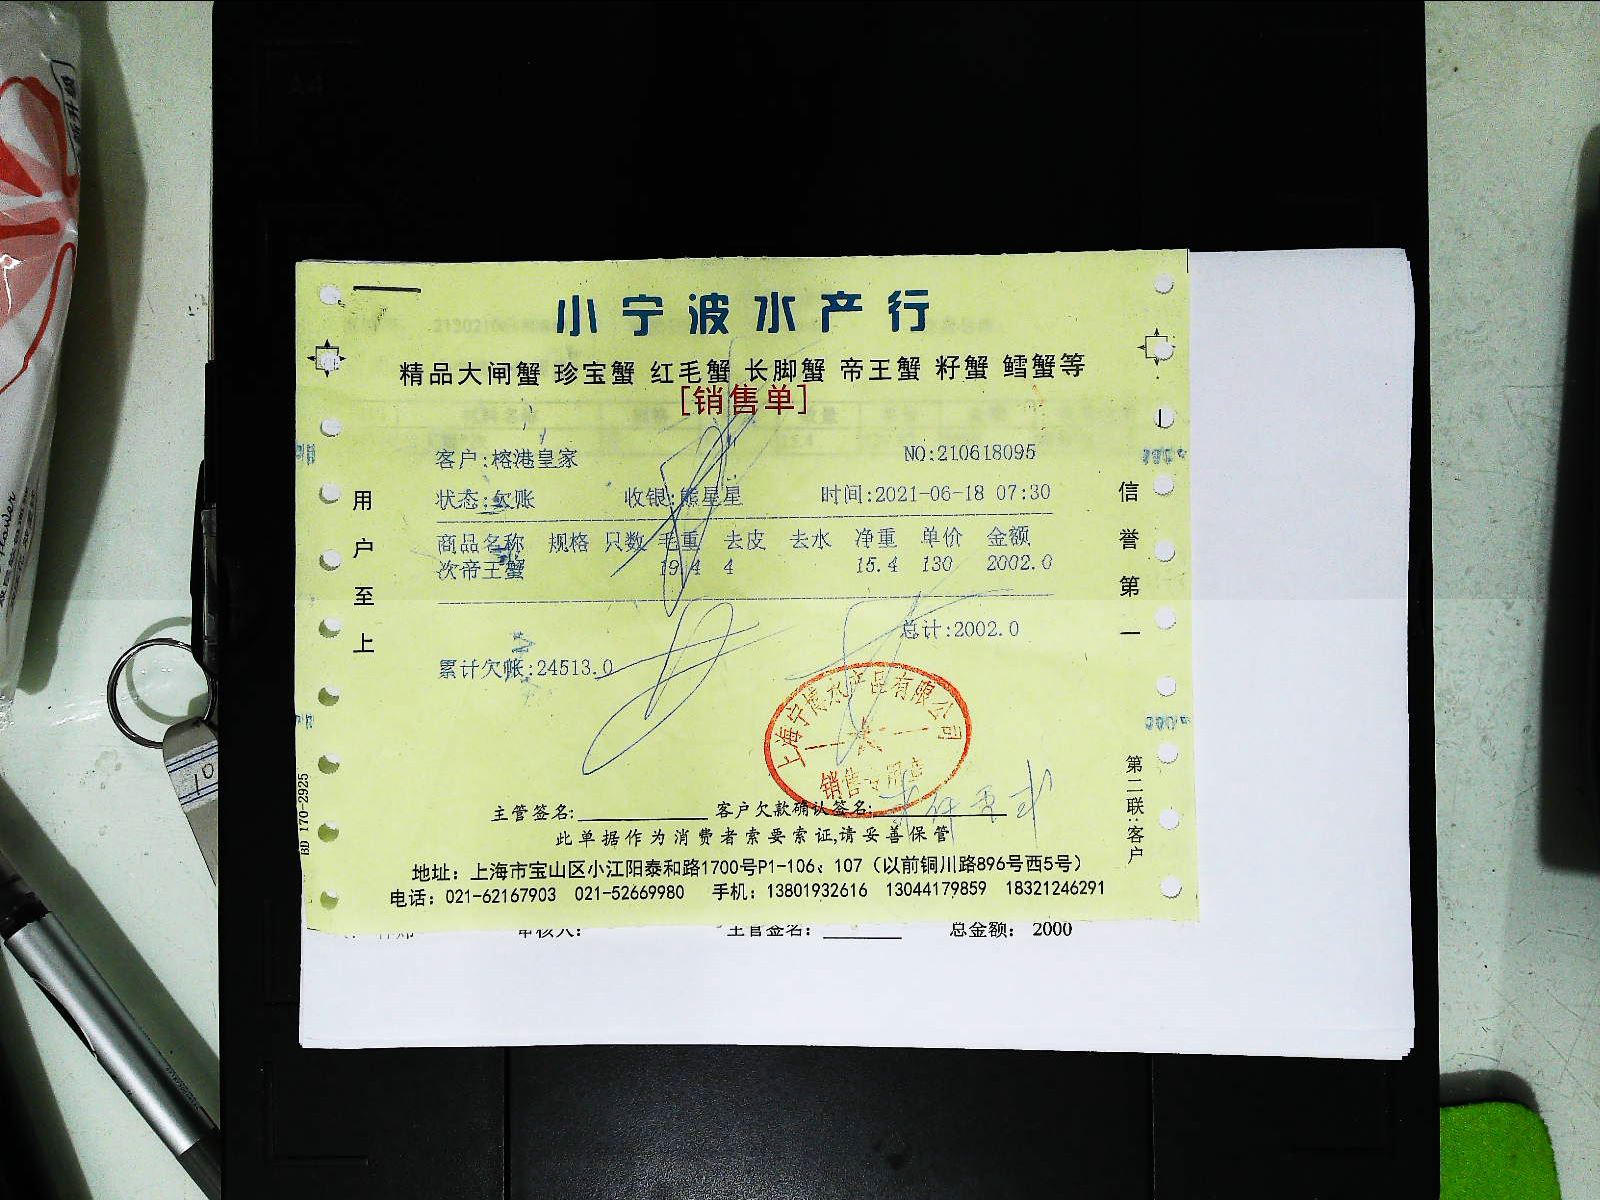 小宁波水产行
精品大闸蟹 珍宝蟹 红毛蟹 长脚蟹 帝王蟹 籽蟹 鳕蟹等
[销售单]
客户:榕港皇家 NO:210618095
状态:欠账 收银:熊星星 时间:2021-06-18 07:30
商品名称 规格 只数 毛重 去皮 去水 净重 单价 金额
次帝王蟹 19.4 4 15.4 130 2002.0
总计:2002.0
累计欠帐:24513.0
用户至上
信誉第一
上海宁波水产品有限公司
销售专用章
主管签名: 客户欠款确认签名:
此单据作为消费者索要索证,请妥善保管
地址：上海市宝山区小江阳泰和路1700号P1-106、107（以前铜川路896号西5号）
电话：021-62167903 021-52669980 手机：13801932616 13044179859 18321246291
第二联:客户
BD 170-2925
审核人: 主管签名: 总金额: 2000
10